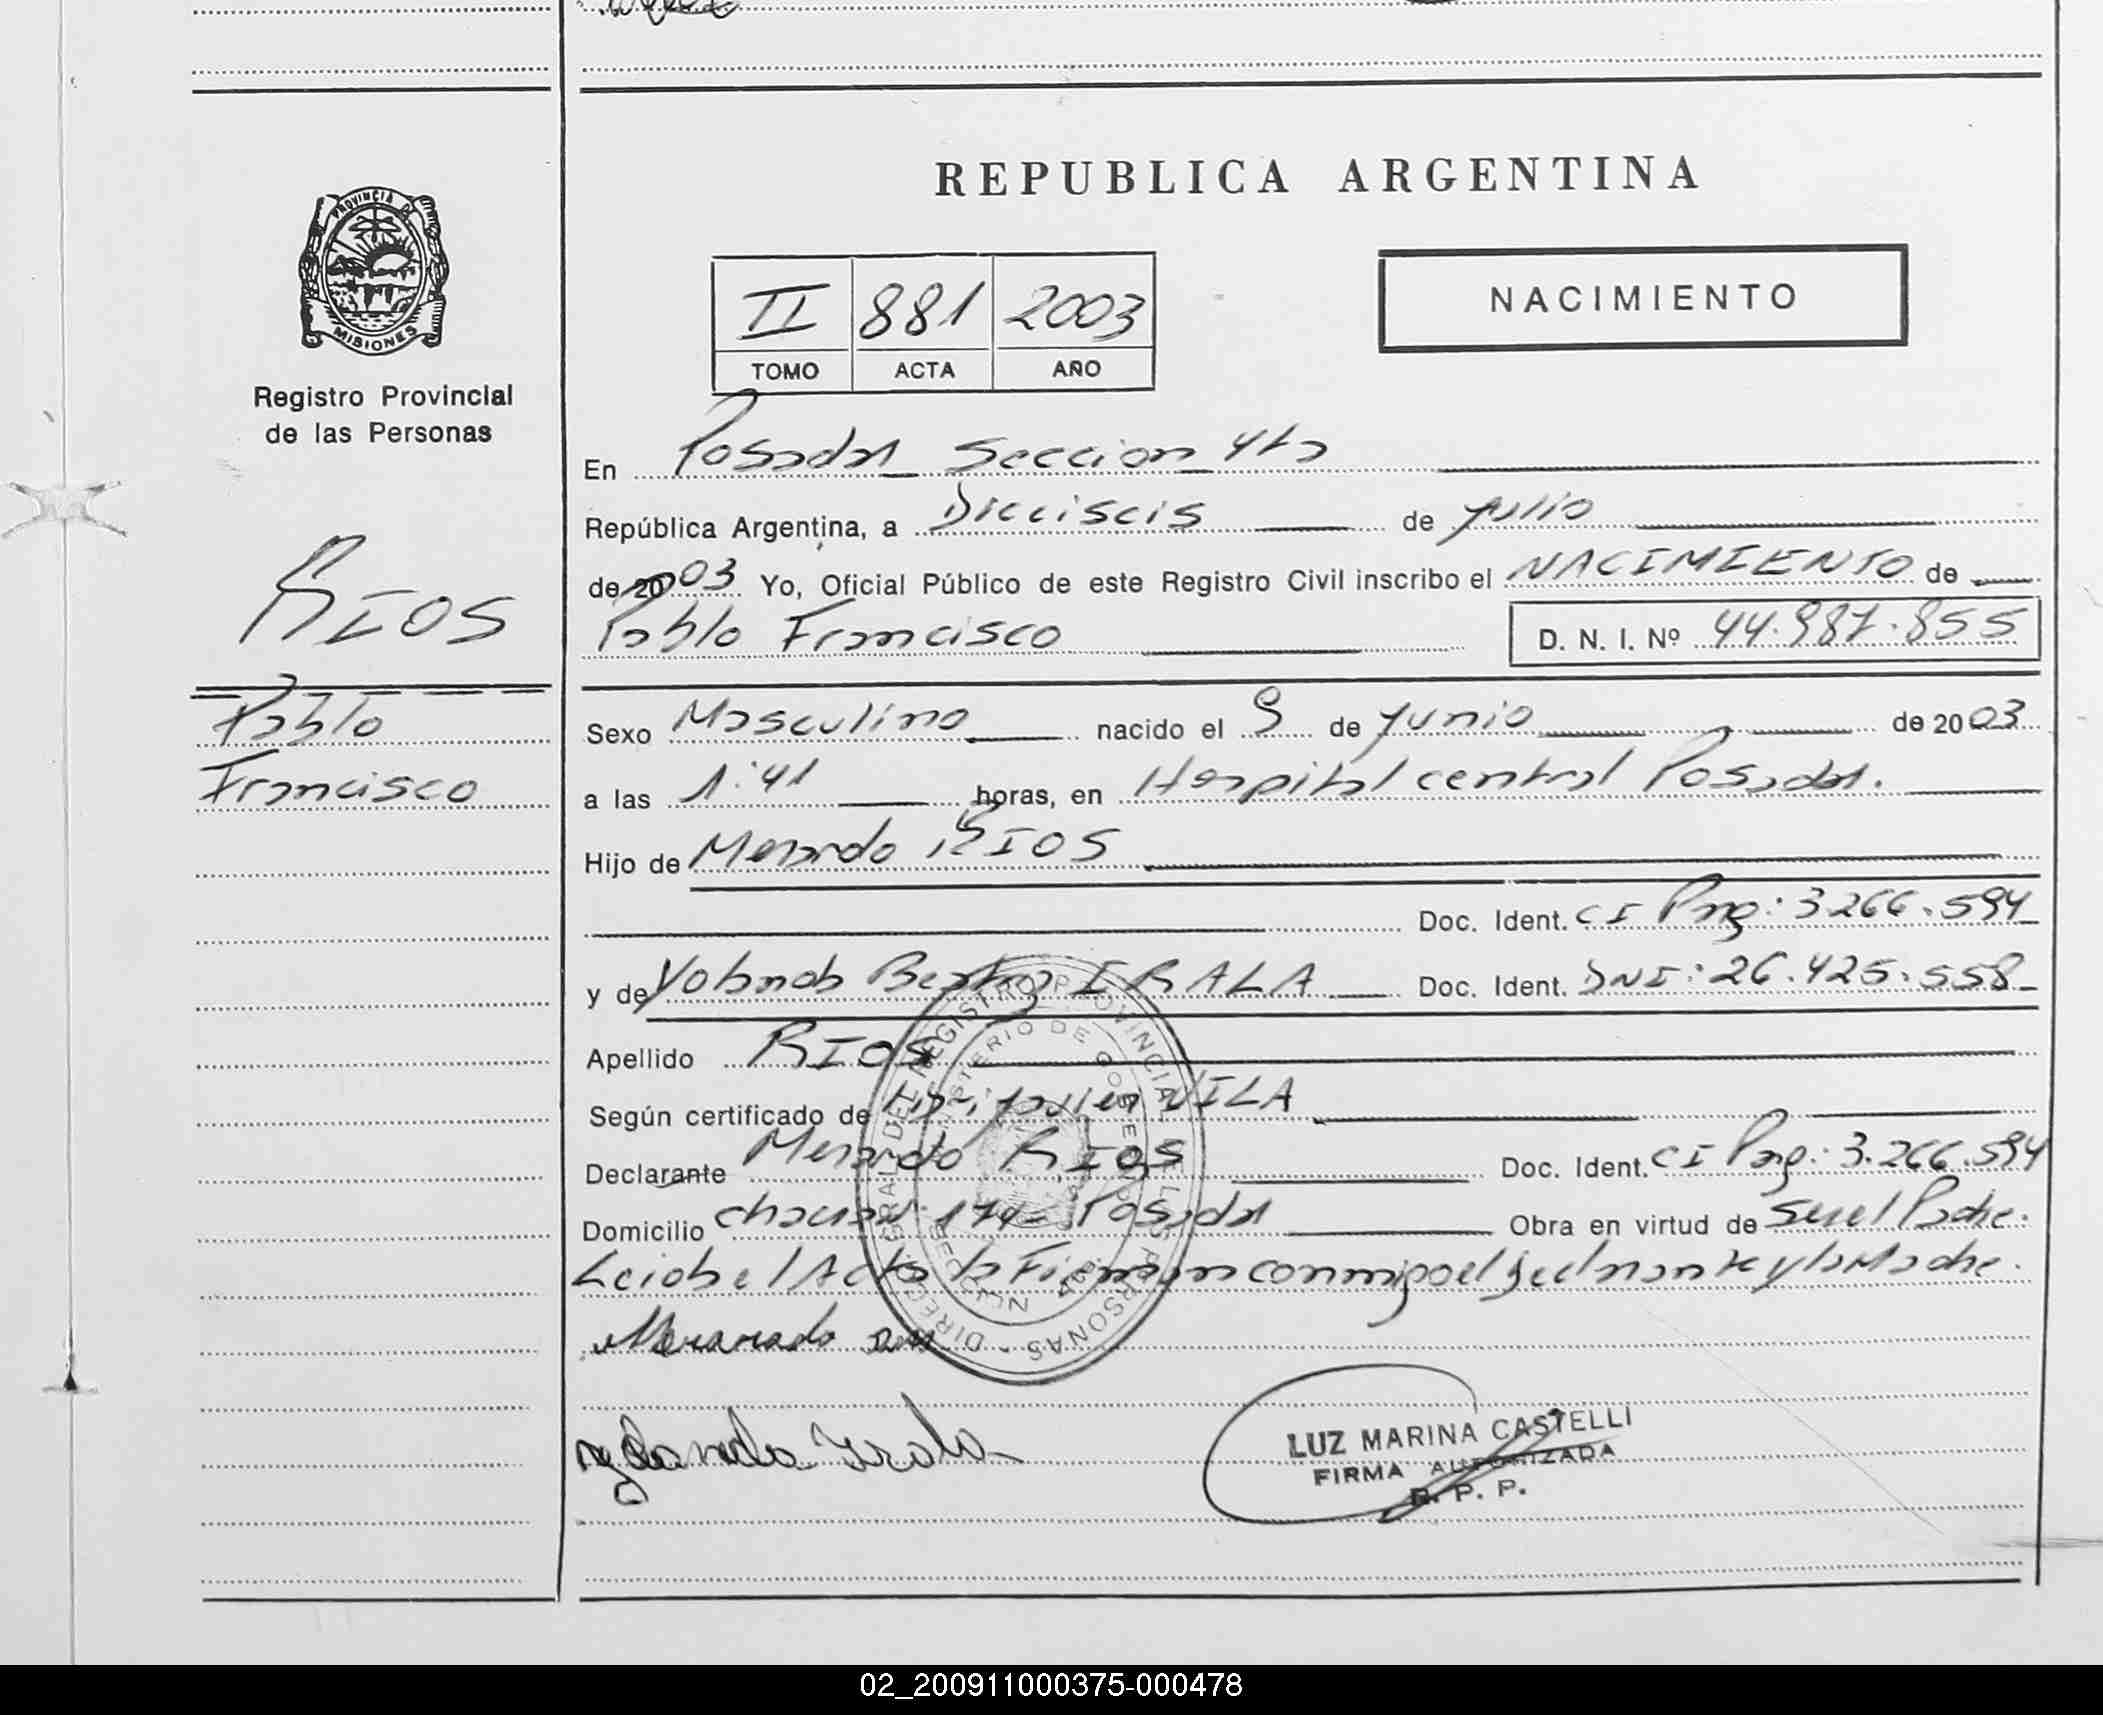 REPUBLICA ARGENTINA
PROVINCIA DE
MISIONES
Registro Provincial
de las Personas
II 881 2003
TOMO ACTA AÑO
NACIMIENTO
RIOS
Pablo
Francisco
En Posadas Seccion 4ta
República Argentina, a Dieciseis de Julio
de 2003 Yo, Oficial Público de este Registro Civil inscribo el NACIMIENTO de
Pablo Francisco D. N. I. Nº 44.987.855
Sexo Masculino nacido el 9 de Junio de 2003
a las 1:41 horas, en Hospital central Posadas.
Hijo de Menardo RIOS
Doc. Ident. CI Prg: 3.266.594
y de Yolanda Beatriz IRALA Doc. Ident. DNI: 26.425.558
Apellido RIOS
Según certificado de VILA
Declarante Menardo RIOS Doc. Ident. CI Prg: 3.266.594
Domicilio chacra 174 - Posadas Obra en virtud de ser el Padre.
Leida el Acta la Firman conmigo el declarante y la Madre.
Menardo
Yolanda Irala
DIREC. GRAL. DEL REGISTRO PROVINCIAL DE LAS PERSONAS
MINISTERIO DE GOB.
LUZ MARINA CASTELLI
FIRMA AUTORIZADA
R. P. P.
02_200911000375-000478